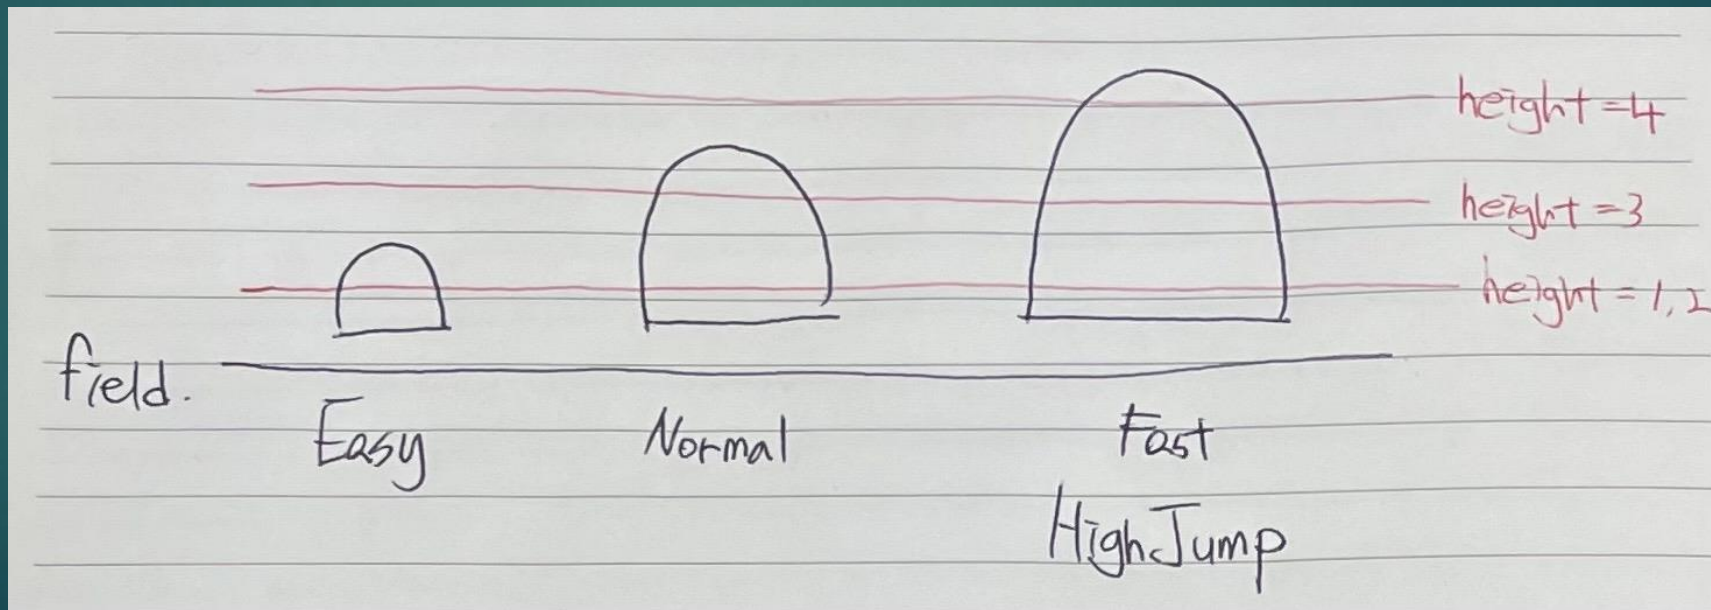 height = 4
height = 3
height = 1, 2
field.
Easy
Normal
Fast
HighJump